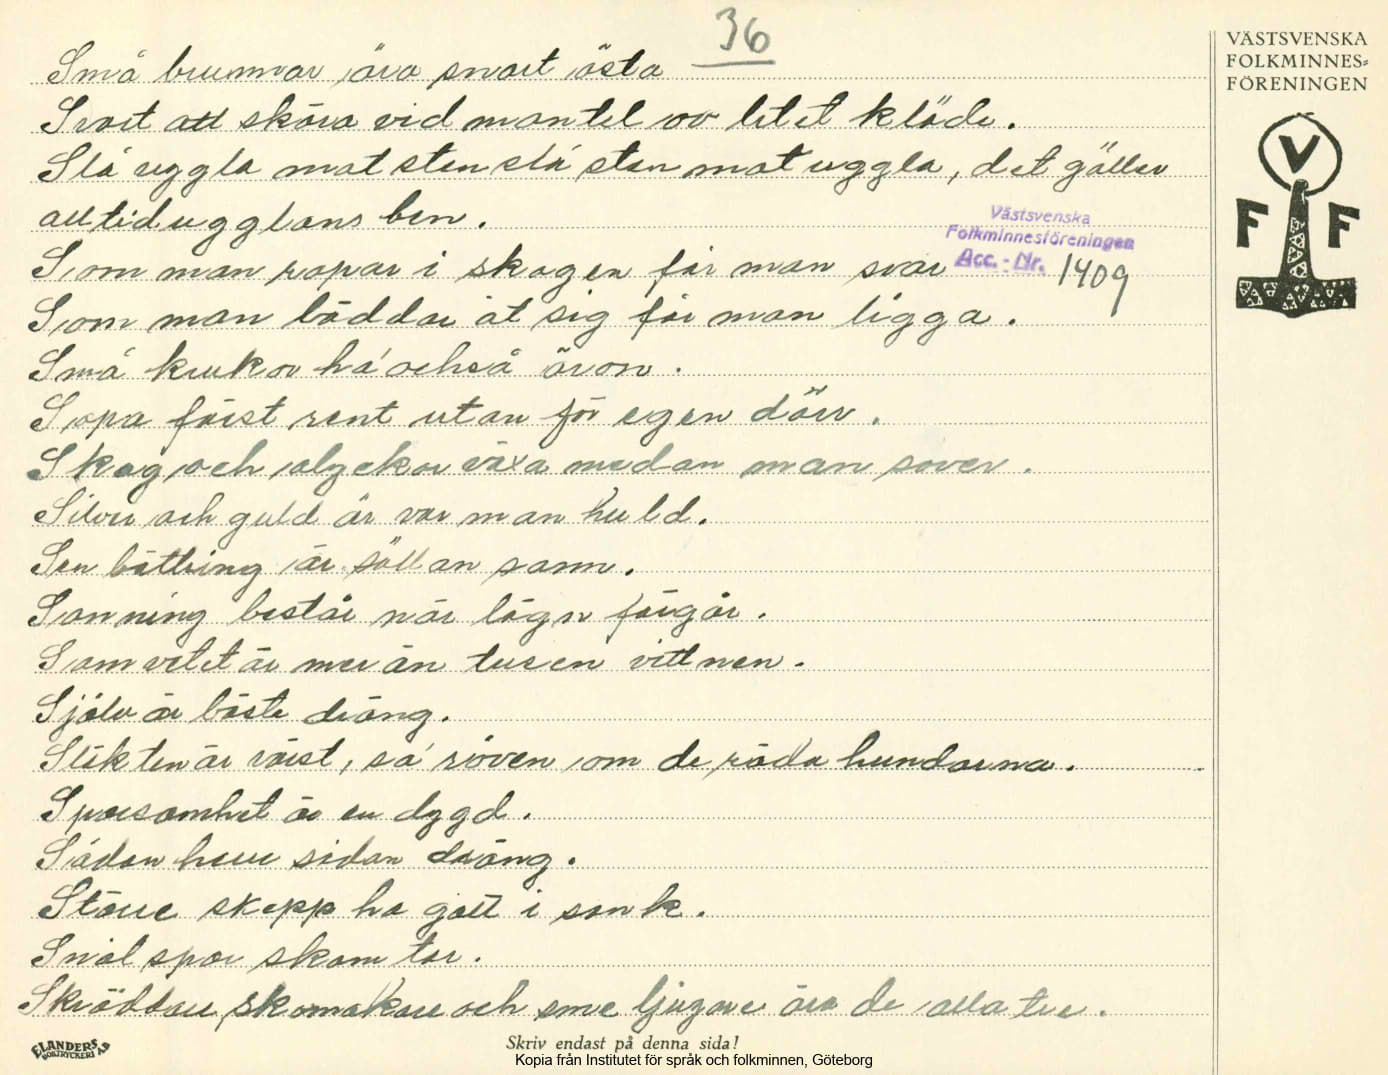 36
VÄSTSVENSKA
FOLKMINNES=
FÖRENINGEN
V
F F
Små brunnar äro snart östa
Svart att skära vid mantel av litet kläde.
Slå uggla mot sten slå sten mot uggla, det gäller
alltid ugglans ben.
Västsvenska
Folkminnesföreningen
Acc. - Nr. 1409
Som man ropar i skogen får man svar
Som man bäddar åt sig får man ligga.
Små krukor há också öron.
Sopa först rent utan för egen dörr.
Skog och olyckor växa medan man sover.
Silver och guld är var man huld.
Sen bättring är sällan sann.
Sanning består när lögn förgår.
Samvetet är mer än tusen vittnen.
Själv är bäste dräng.
Släkten är värst, sa' räven om de röda hundarna.
Sparsamhet är en dygd.
Sådan herre sådan dräng.
Större skepp ha gått i sank.
Snål spar skam tar.
Skräddare, skomakare och sme ljugare äro de alla tre.
ELANDERS
BOKTRYCKERI A.B
Skriv endast på denna sida!
Kopia från Institutet för språk och folkminnen, Göteborg